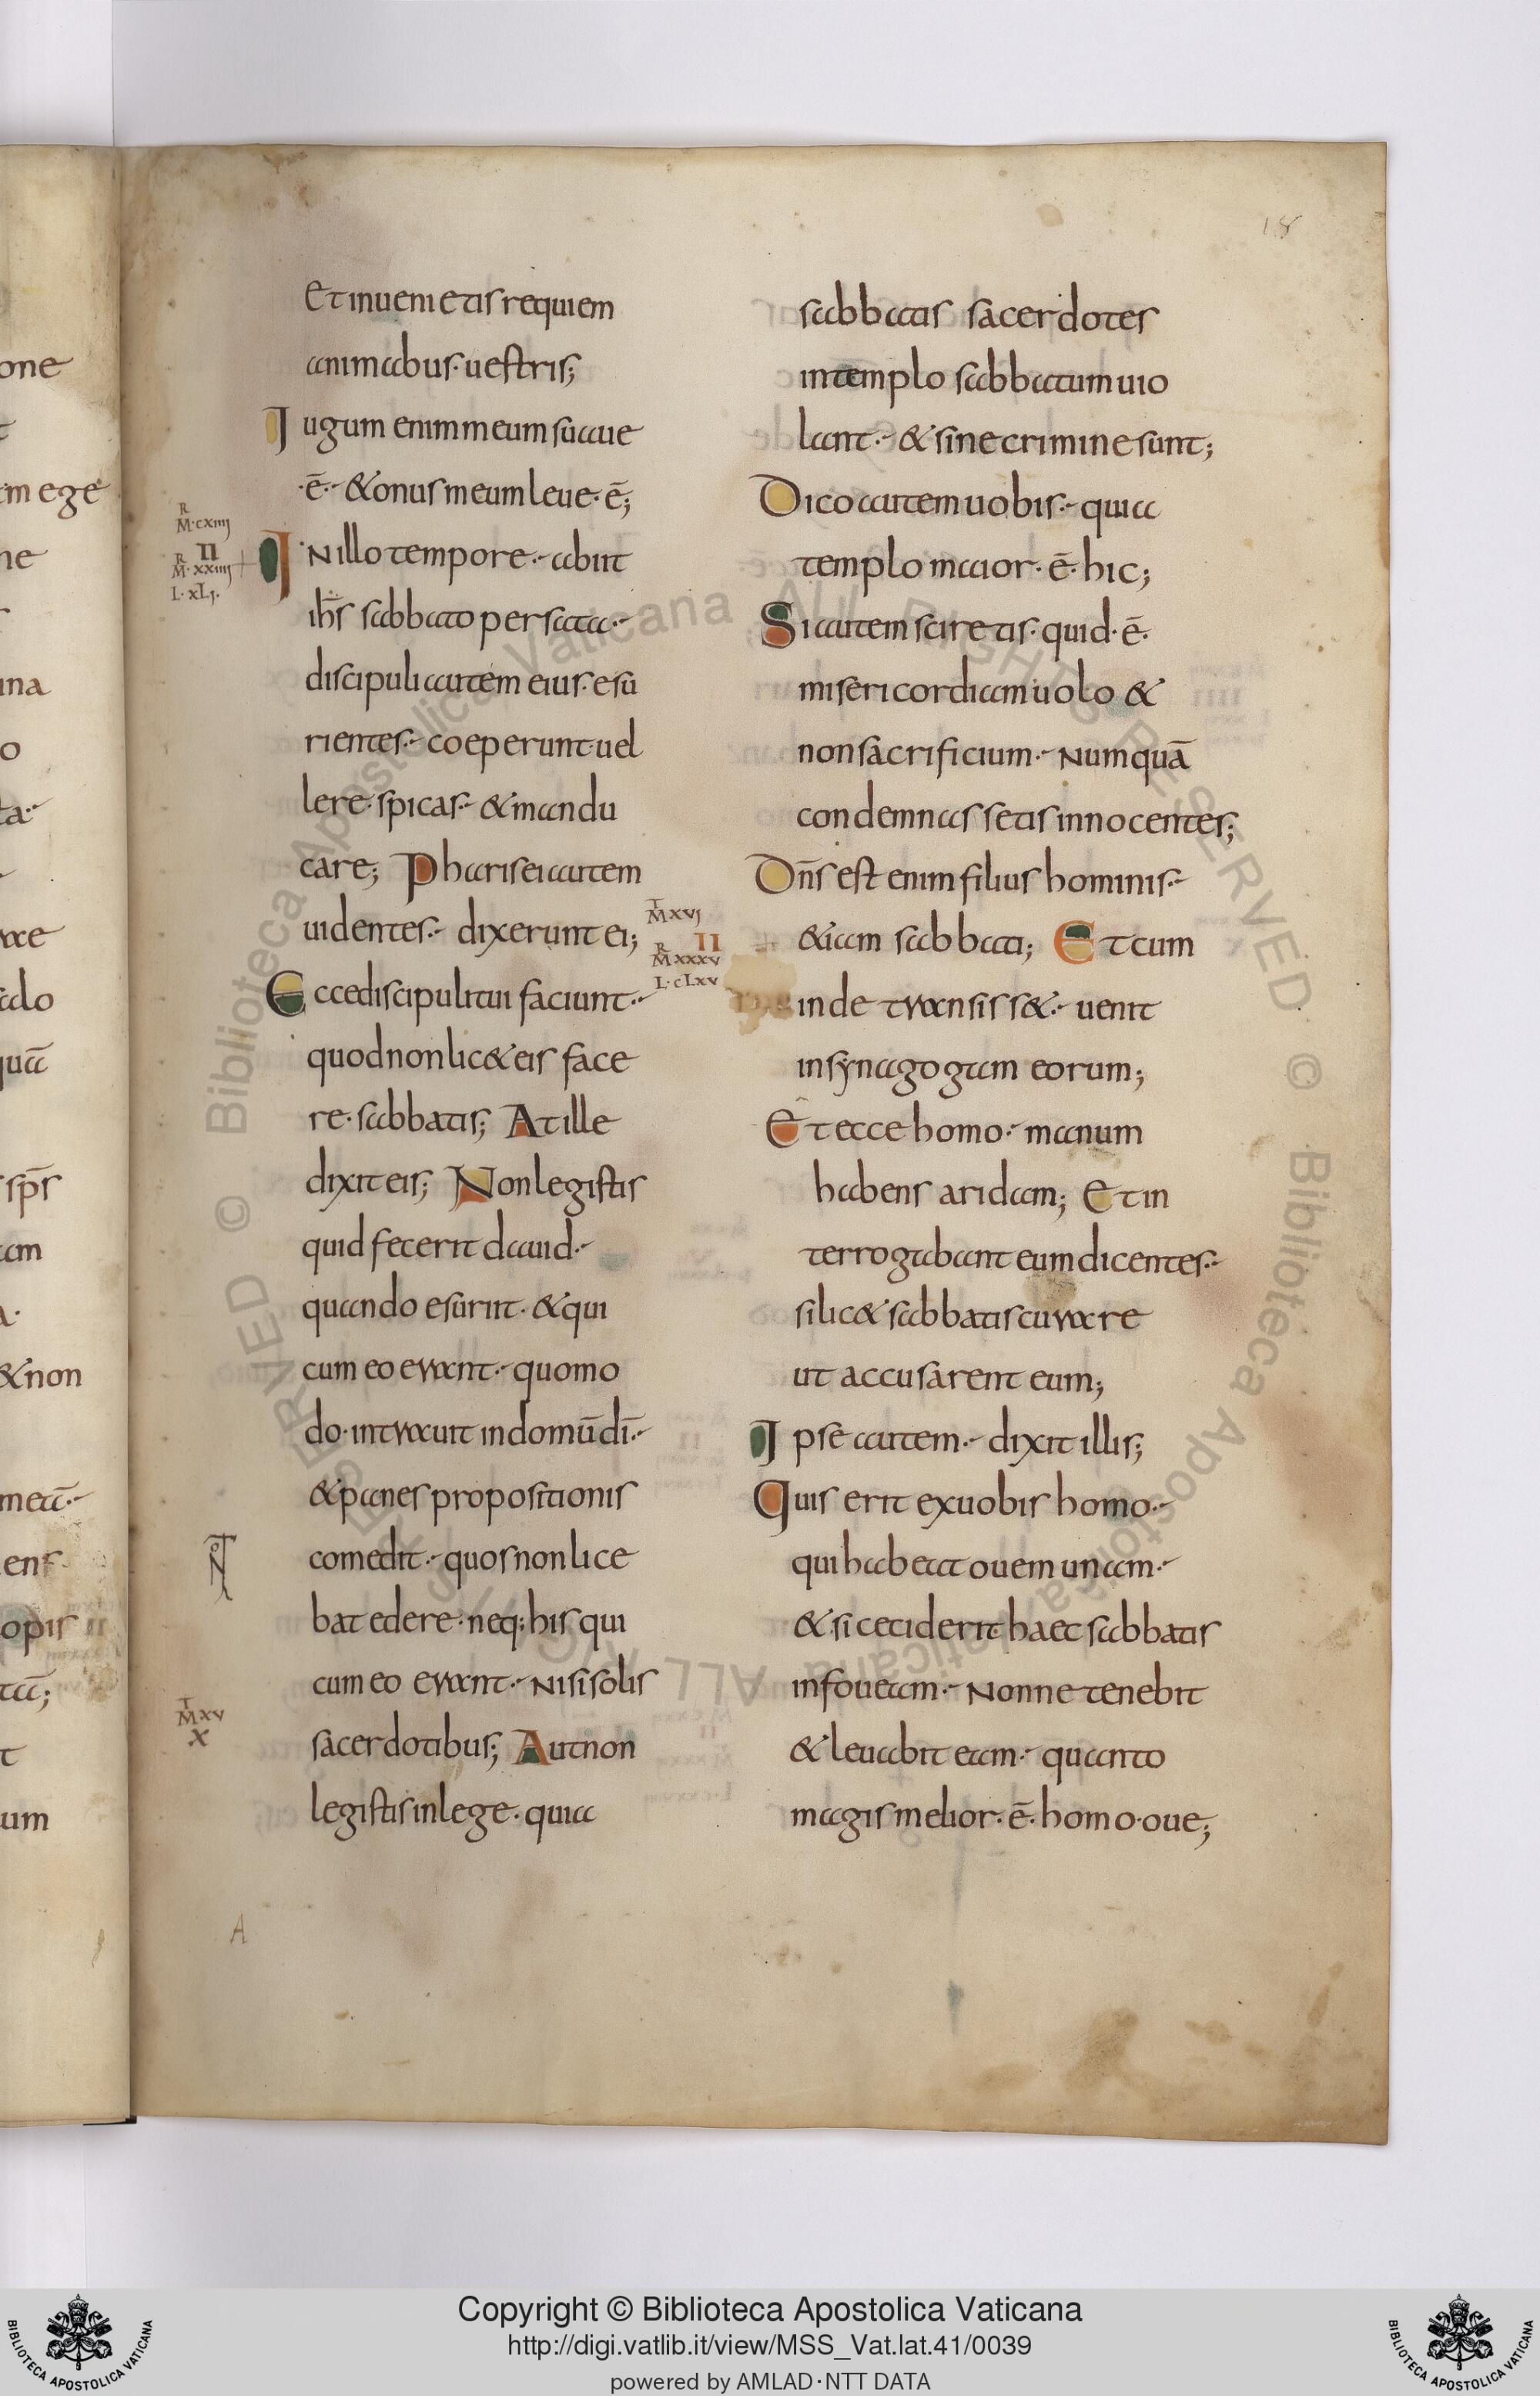 18
Et inuenietis requiem
animabus· uestris;
Jugum enim meum suaue
·ē· & onus meum leue· ē;
R
M·cxiiij
II
R
M·xxiiij
L·xLj·
JN illo tempore· abiit
ihs̄ sabbato per sata·
discipuli autem eius· esu
rientes· coeperunt uel
lere· spicas· & mandu
care; Pharisei autem
uidentes· dixerunt ei;
Ecce discipuli tui faciunt·
quod non lic& eis face
re· sabbatis; At ille
dixit eis; Non legistis
quid fecerit dauid·
quando esuriit· & qui
cum eo erant· quomo
do· intrauit in domū dī·
& panes propositionis
comedit· quos non lice
bat edere· neq; his qui
cum eo erant· Nisi solis
T
M xv
X
sacerdotibus; Aut non
legistis in lege· quia
A
sabbatis sacerdotes
in templo sabbatum uio
lant· & sine crimine sunt;
Dico autem uobis· quia
templo maior· ē· hic;
Si autem sciretis· quid· ē·
misericordiam uolo &
non sacrificium· Numquā
condemnassetis innocentes;
Dn̄s est enim filius hominis·
T
M xvj
R II
M xxxv
L·cLxv
&iam sabbati; Et cum
inde transiss&· uenit
in synagogam eorum;
Et ecce homo· manum
habens aridam; Et in
terrogabant eum dicentes·
si lic& sabbatis curare
ut accusarent eum;
Jpse autem· dixit illis;
Quis erit ex uobis homo·
qui habeat ouem unam·
& si ceciderit haec sabbatis
in foueam· Nonne tenebit
& leuabit eam· quanto
magis melior· ē· homo· oue;
© Biblioteca Apostolica Vaticana ALL RIGHTS RESERVED
© Biblioteca Apostolica Vaticana ALL RIGHTS RESERVED
Copyright © Biblioteca Apostolica Vaticana
http://digi.vatlib.it/view/MSS_Vat.lat.41/0039
powered by AMLAD·NTT DATA
BIBLIOTECA APOSTOLICA VATICANA
BIBLIOTECA APOSTOLICA VATICANA